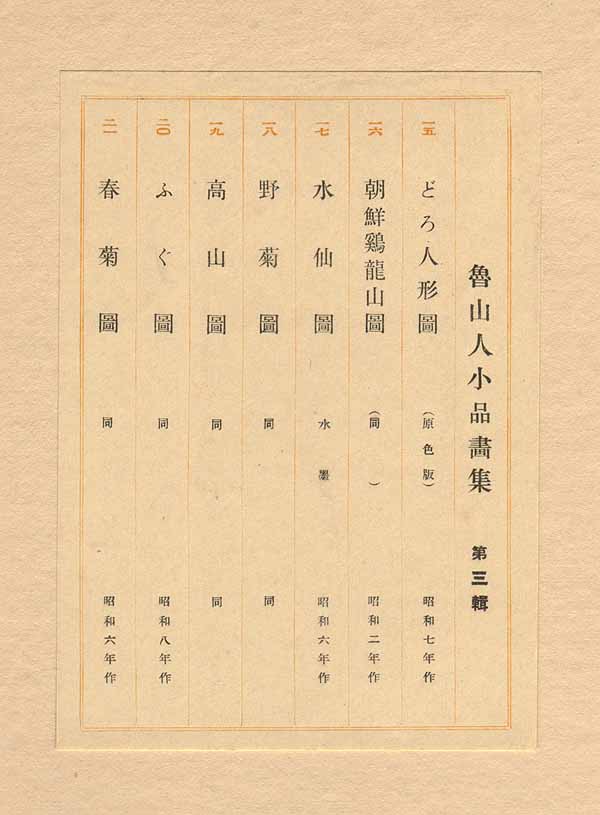 魯山人小品畵集 第三輯
一五 どろ人形圖 (原色版) 昭和七年作
一六 朝鮮鷄龍山圖 (同 ) 昭和二年作
一七 水仙圖 水墨 昭和六年作
一八 野菊圖 同 同
一九 高山圖 同 同
二〇 ふぐ圖 同 昭和八年作
二一 春菊圖 同 昭和六年作